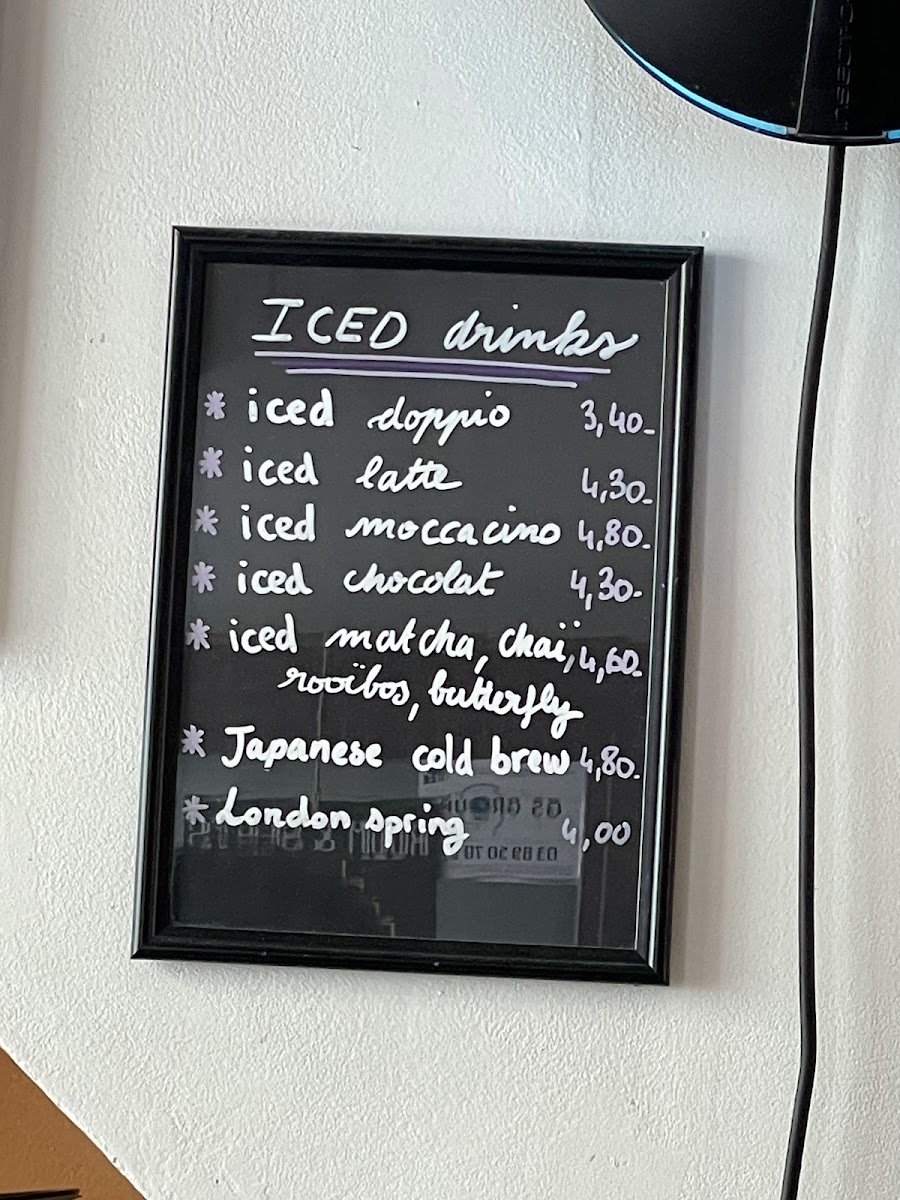 ICED drinks
* iced doppio 3,40.-
* iced latte 4,30.-
* iced moccacino 4,80.-
* iced chocolat 4,30.-
* iced matcha, chaï, 4,60.-
rooïbos, butterfly
* Japanese cold brew 4,80.-
* London spring 4,00